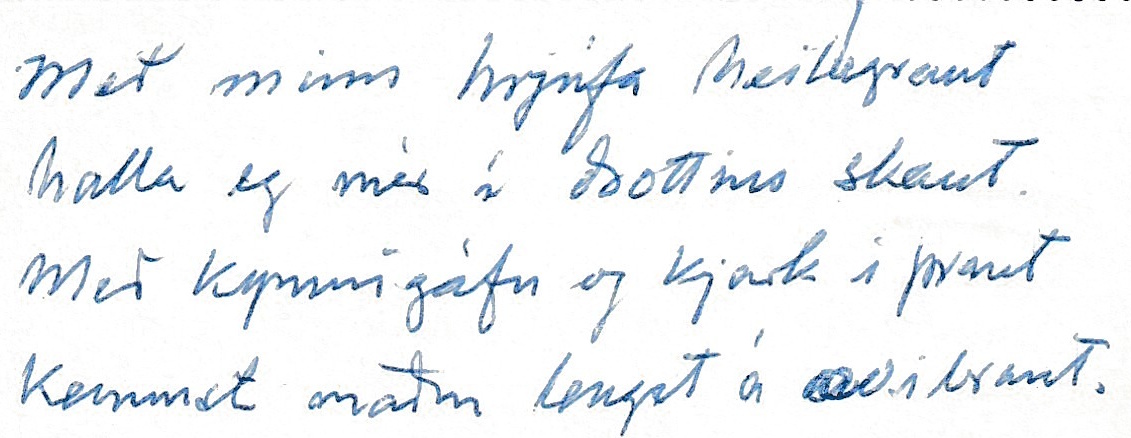 Með minn hrjúfa heilagraut
halla eg mér á drottins skaut.
Með kýmnigáfu og kjark í þraut
kemmst maður lengst á ævibraut.